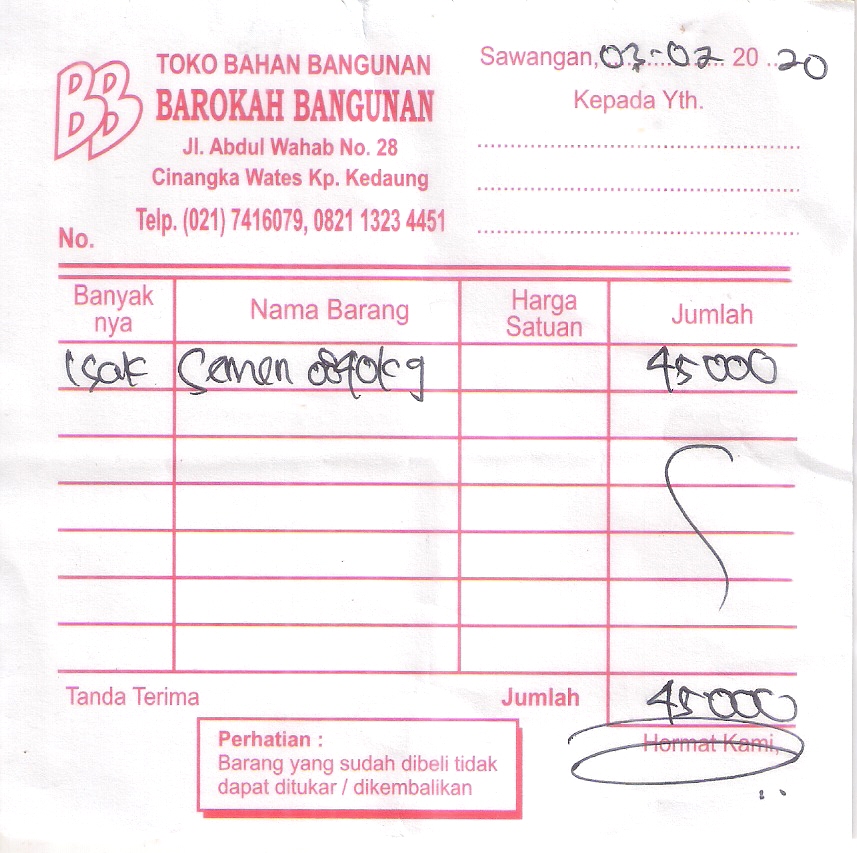 BB
TOKO BAHAN BANGUNAN
BAROKAH BANGUNAN
Jl. Abdul Wahab No. 28
Cinangka Wates Kp. Kedaung
Telp. (021) 7416079, 0821 1323 4451
No.
Sawangan, 03-02 20 20
Kepada Yth.
Banyak nya Nama Barang Harga Satuan Jumlah
1 sak Semen 40kg 45000
Tanda Terima Jumlah 45000
Hormat Kami,
Perhatian :
Barang yang sudah dibeli tidak
dapat ditukar / dikembalikan